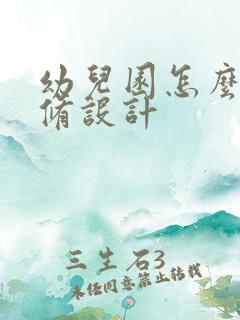 幼兒園怎麼
脩設計
三生石3
未經同意禁止轉載